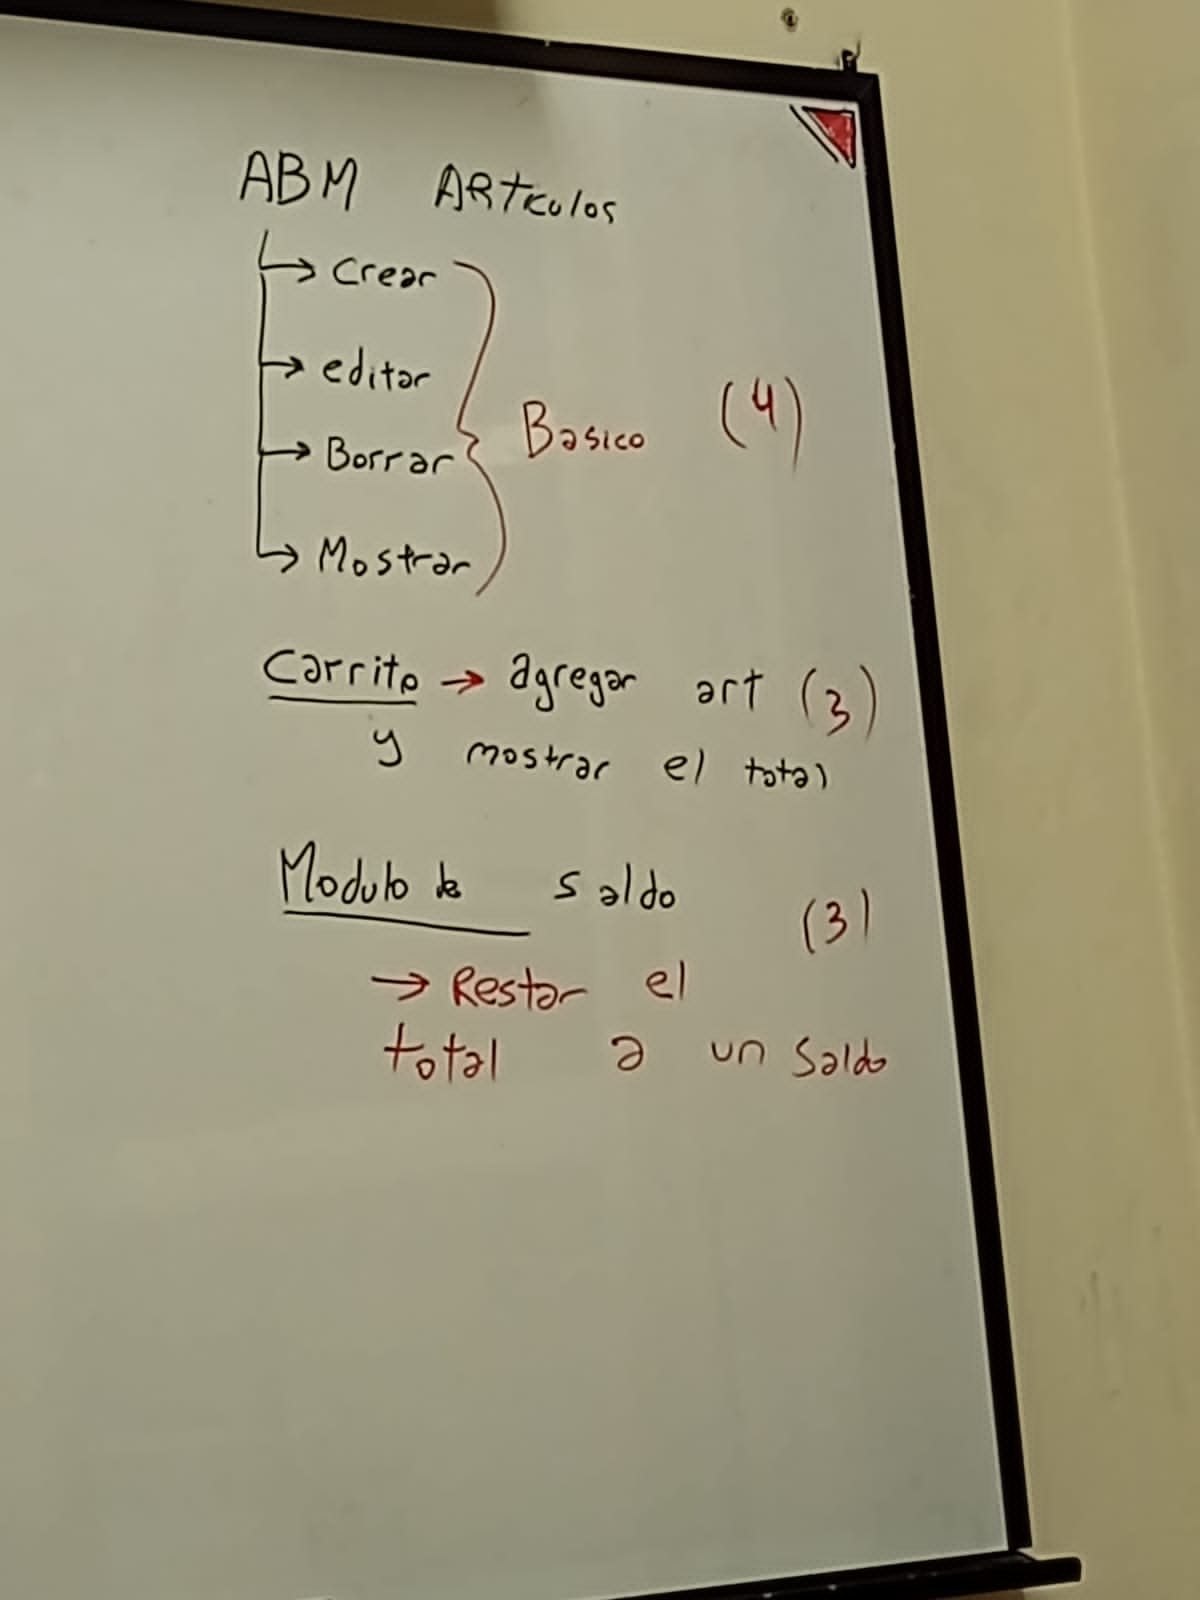 ABM ARTICULOS
→ Crear
→ editar
→ Borrar
→ Mostrar
Basico (4)
Carrito → agregar art (3)
y mostrar el total
Modulo de saldo
(3)
→ Restar el
total a un saldo